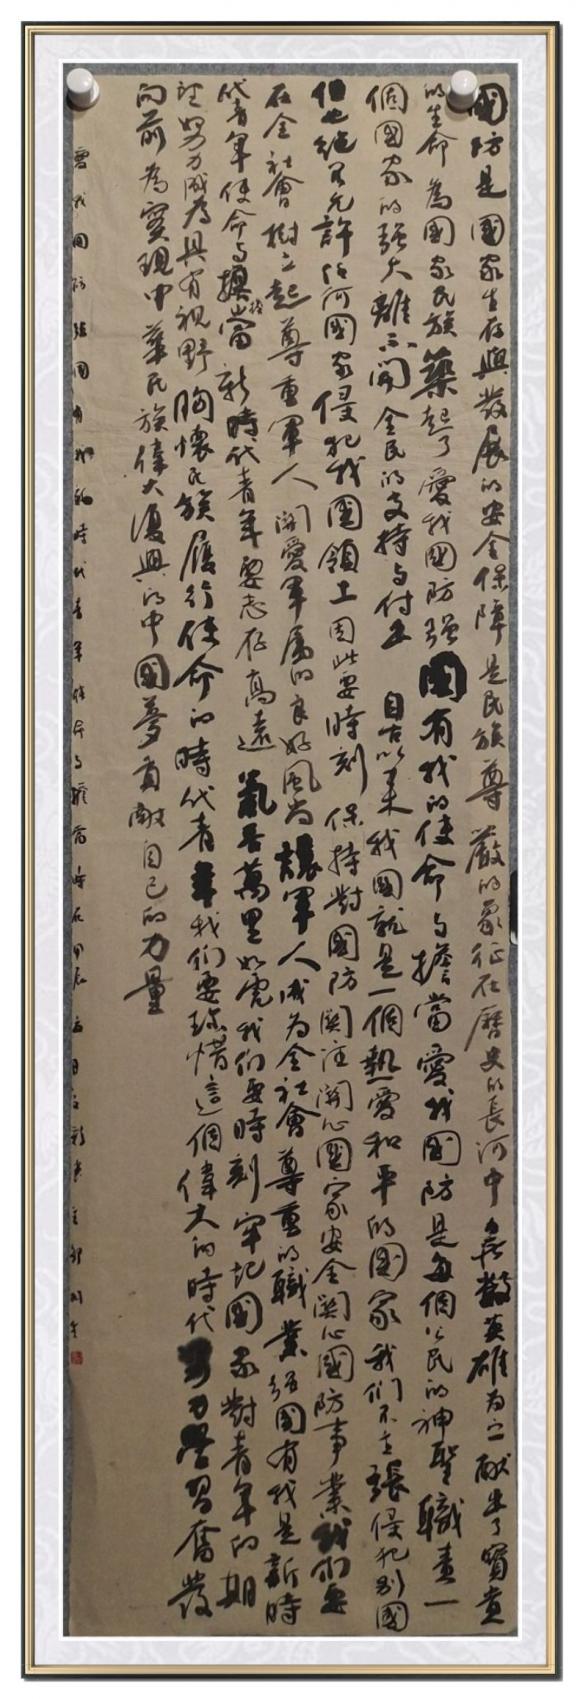 國防是國家生存與發展的安全保障是民族尊嚴的象征在歷史的長河中無數英雄為之獻出了寶貴
的生命為國家民族築起了愛我國防強國有我的使命与擔當愛我國防是每個公民的神聖職責一
個國家的強大離不開全民的支持与付出自古以來我國就是一個熱愛和平的國家我們不主張侵犯別國
但也絕不允許任何國家侵犯我國領土因此要時刻保持對國防關注關心國家安全關心國防事業我們要
在全社會樹立起尊重軍人關愛軍屬的良好風尚讓軍人成为全社會尊重的職業強國有我是新時
代青年使命与擔當新時代青年要志存高遠氣吞萬里如虎我們要時刻牢記國家對青年的期
望努力成為具有視野胸懷民族履行使命的時代青年我們要珍惜這個偉大的時代努力學習奮發
向前為實現中華民族偉大復興的中國夢貢獻自己的力量
愛我國防強國有我的時代青年使命与擔當時在甲辰